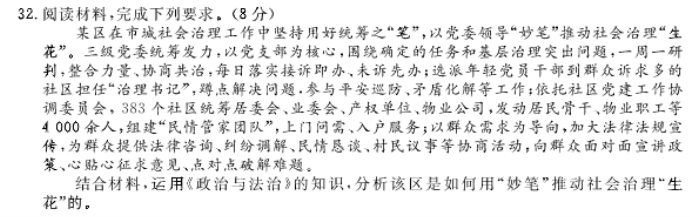 32. 阅读材料,完成下列要求。(8分)
某区在市域社会治理工作中坚持用好统筹之“笔”,以党委领导“妙笔”推动社会治理“生
花”。三级党委统筹发力,以党支部为核心,围绕确定的任务和基层治理突出问题,一周一研
判,整合力量、协商共治,每日落实接诉即办、未诉先办;选派年轻党员干部到群众诉求多的
社区担任“治理书记”,蹲点解决问题,参与平安巡防、矛盾化解等工作;依托社区党建工作协
调委员会,383个社区统筹居委会、业委会、产权单位、物业公司,发动居民骨干、物业职工等
4 000余人,组建“民情管家团队”,上门问需、入户服务;以群众需求为导向,加大法律法规宣
传,为群众提供法律咨询、纠纷调解、民情恳谈、村民议事等协商活动,向群众面对面宣讲政
策、心贴心征求意见、点对点破解难题。
结合材料,运用《政治与法治》的知识,分析该区是如何用“妙笔”推动社会治理“生
花”的。